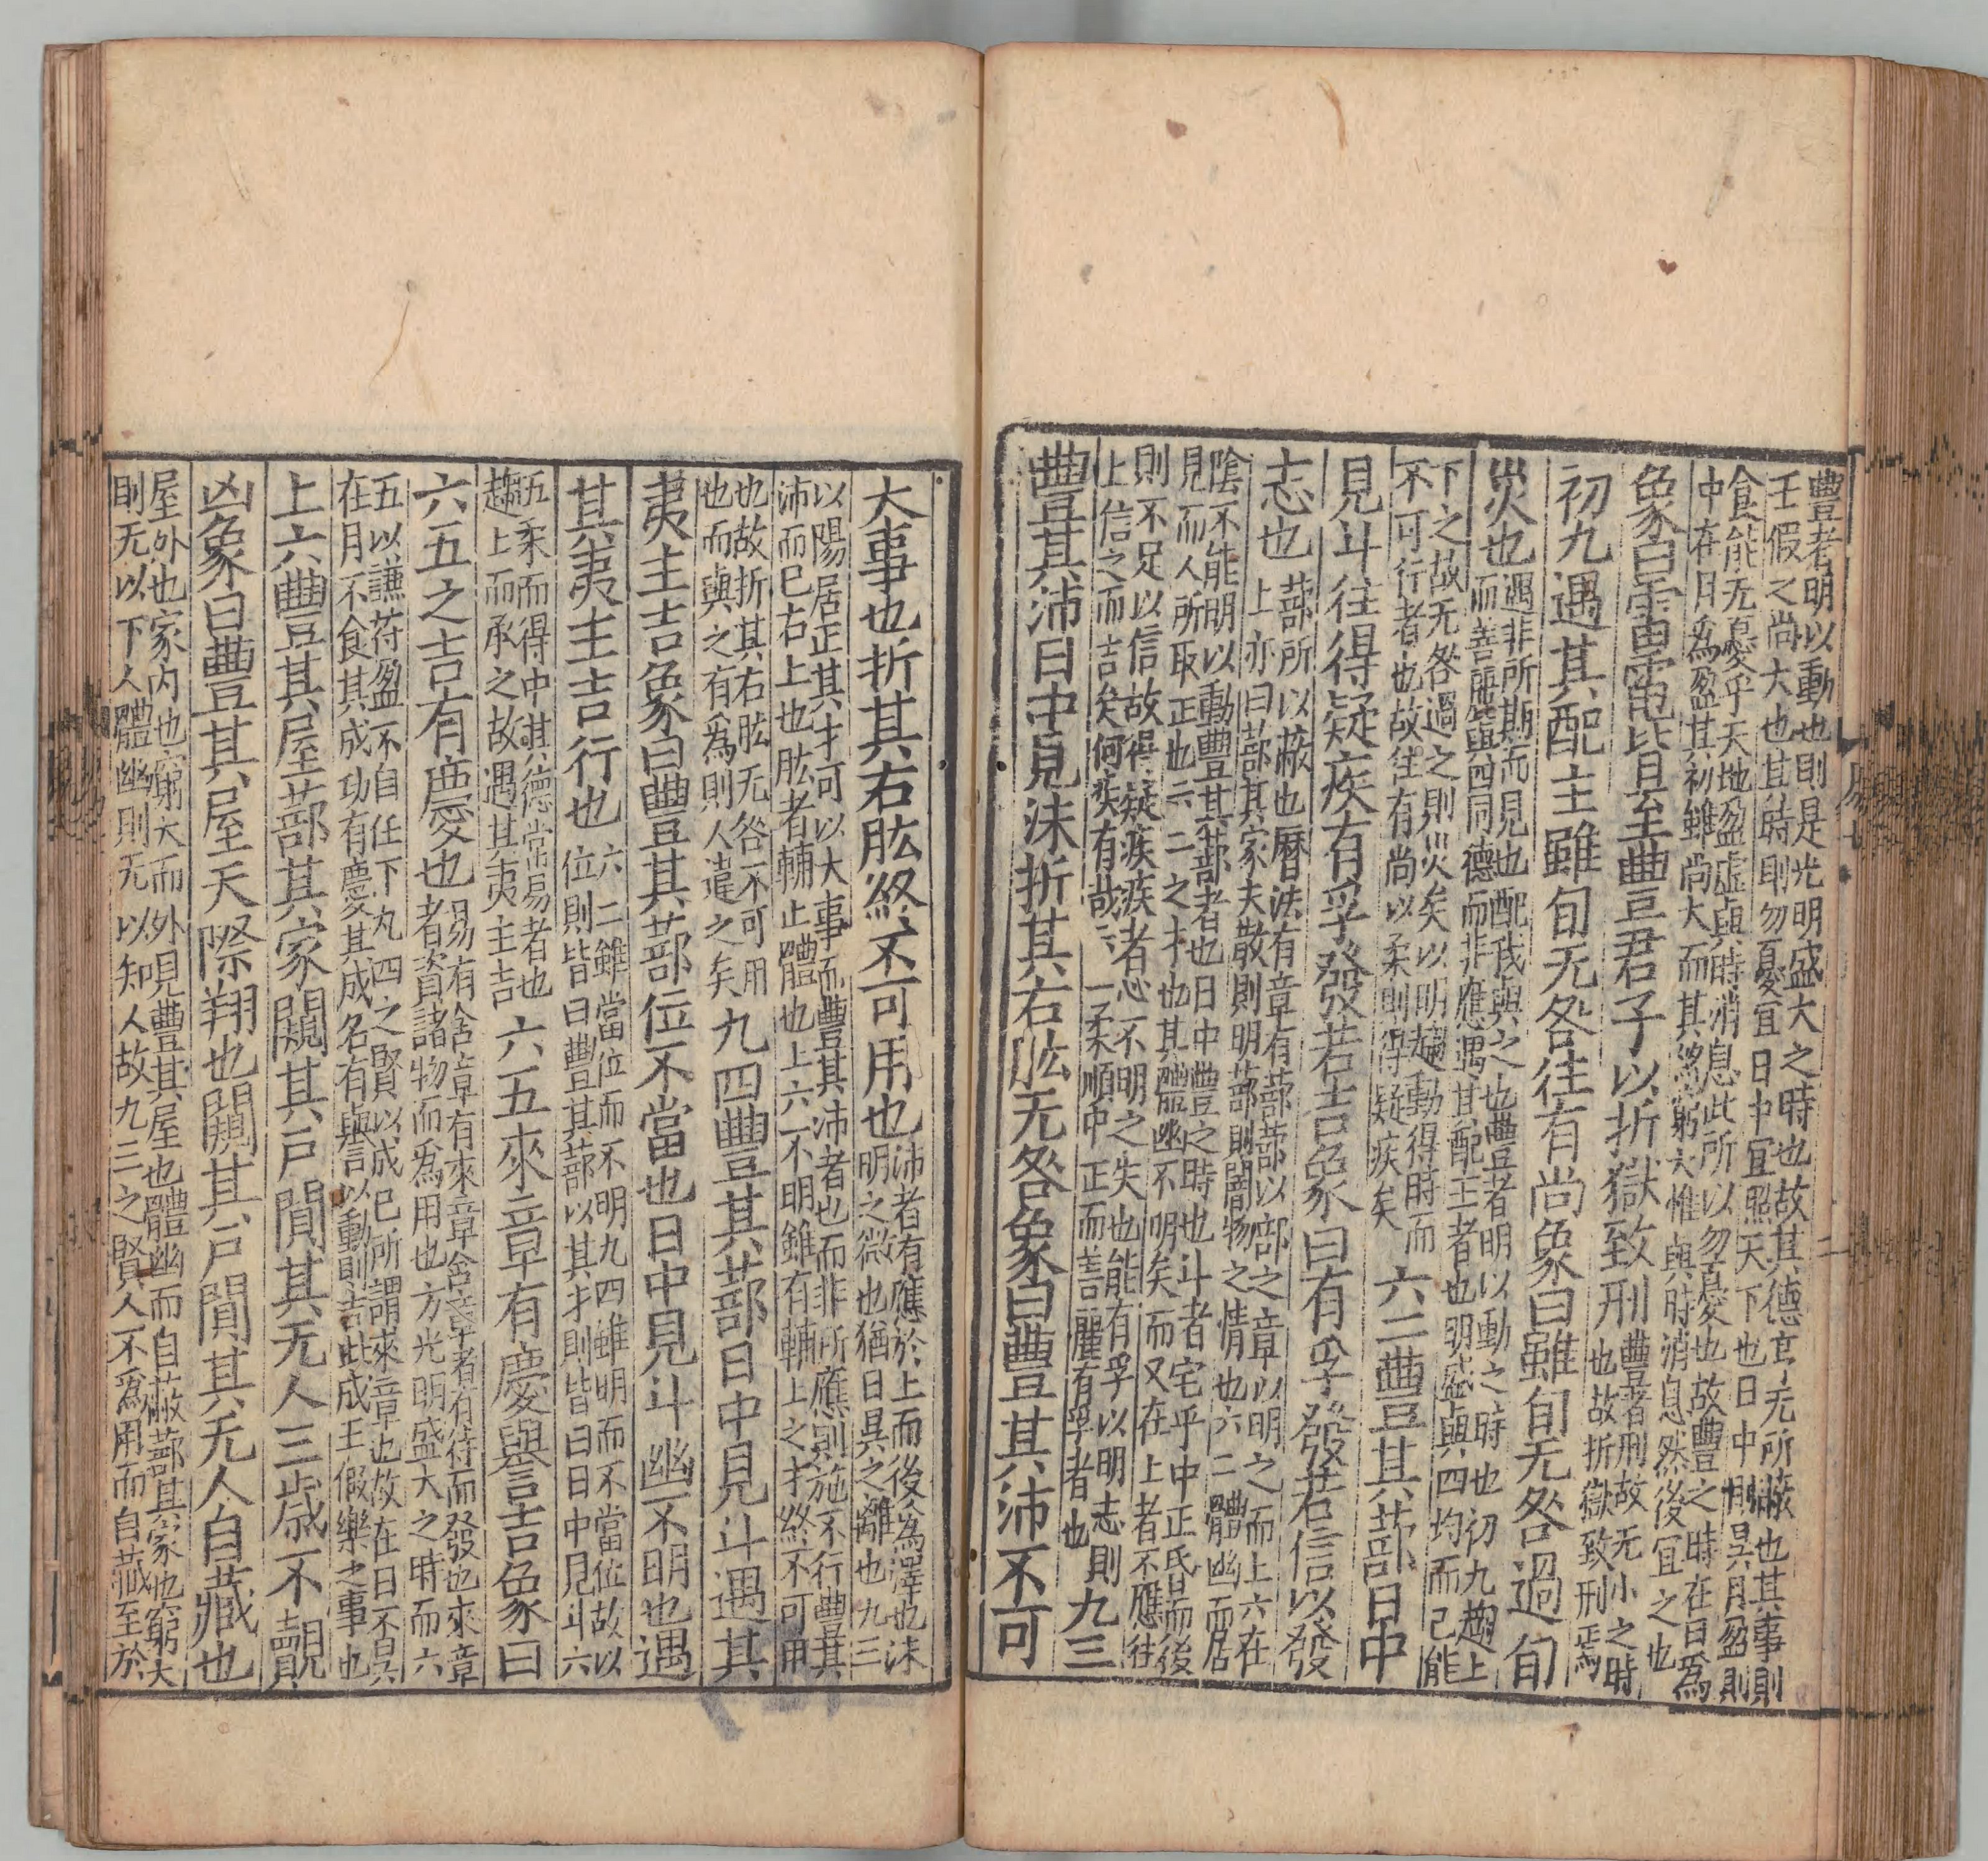 豐者明以動也則是光明盛大之時也故其德言无所蔽也其事則
王假之尚大也其時則勿憂宜日中宜照天下也日中則昃月盈則
食能无憂乎天地盈虛與時消息此所以勿憂也故豐之時在日為
中在月為盈其初雖尚大而其終窮大惟與時消息然後宜之也
象曰雷電皆至豐君子以折獄致刑豐者刑故无小之時
也故折獄致刑焉
初九遇其配主雖旬无咎往有尚象曰雖旬无咎過旬
災也遇非所期而見也配我與之也豐者明以動之時也初九趨上
而善麗與四同德而非應遇其配主者也明盛與四均而己能
下之故无咎過之則災矣以明趨動得時而
不可行者也故往有尚以柔則得疑疾矣六二豐其蔀日中
見斗往得疑疾有孚發若吉象曰有孚發若信以發
志也蔀所以蔽也曆法有章有蔀蔀以蔀之章以明之而上六在
上亦曰蔀其家夫散則明蔀則闇物之情也六二體幽而居
陰不能明以動豐其蔀者也日中豐之時也斗者宅乎中正昏而後
見而人所取正也六二之才也其體幽不明矣而又在上者不應往
則不足以信故得疑疾疾者心不明之失也能有孚以明志則
上信之而吉矣何疾有哉六二柔順中正而善麗有孚者也九三
豐其沛日中見沬折其右肱无咎象曰豐其沛不可
大事也折其右肱終不可用也沛者有應於上而後為澤也沬
明之微也猶日昃之離也九三
以陽居正其才可以大事而豐其沛者也而非所應則施不行豐其
沛而已右上也肱者輔止體也上六不明雖有輔上之才終不可用
也故折其右肱无咎不可用
也而與之有為則人違之矣九四豐其蔀日中見斗遇其
夷主吉象曰豐其蔀位不當也日中見斗幽不明也遇
其夷主吉行也六二雖當位而不明九四雖明而不當位故以
位則皆曰豐其蔀以其才則皆曰日中見斗六
五柔而得中其德常易者也
趨上而承之故遇其夷主吉六五來章有慶譽吉象曰
六五之吉有慶也易有含章有來章含章者有待而發也來章
者資諸物而為用也方光明盛大之時而六
五以謙苻盈不自任下九四之賢以成己所謂來章也故在日不昃
在月不食其成功有慶其成名有譽以動則吉此成王假樂之事也
上六豐其屋蔀其家闚其戶闃其无人三歲不覿
凶象曰豐其屋天際翔也闚其戶闃其无人自藏也
屋外也家內也窮大而外見豐其屋也體幽而自蔽蔀其家也窮大
則无以下人體幽則无以知人故九三之賢人不為用而自藏至於